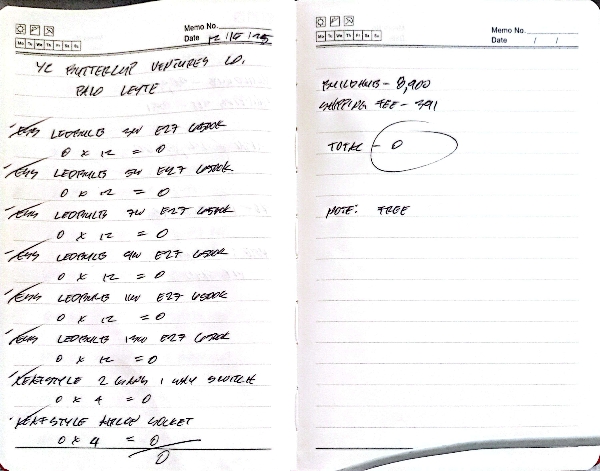 Memo No.
Date 12/16/25
Mo Tu We Th Fr Sa Su
YC BUTTERCUP VENTURES CO.
PALO LEYTE
LEDBULB 3W E27 6500K
0 x 12 = 0
LEDBULB 5W E27 6500K
0 x 12 = 0
LEDBULB 7W E27 6500K
0 x 12 = 0
LEDBULB 9W E27 6500K
0 x 12 = 0
LEDBULB 11W E27 6500K
0 x 12 = 0
LEDBULB 13W E27 6500K
0 x 12 = 0
2 GANG 1 WAY SWITCH
0 x 4 = 0
SOCKET
0 x 4 = 0
0
Memo No.
Date / /
Mo Tu We Th Fr Sa Su
BUILDHUB - 8,900
SHIPPING FEE - 391
TOTAL - 0
NOTE: FREE